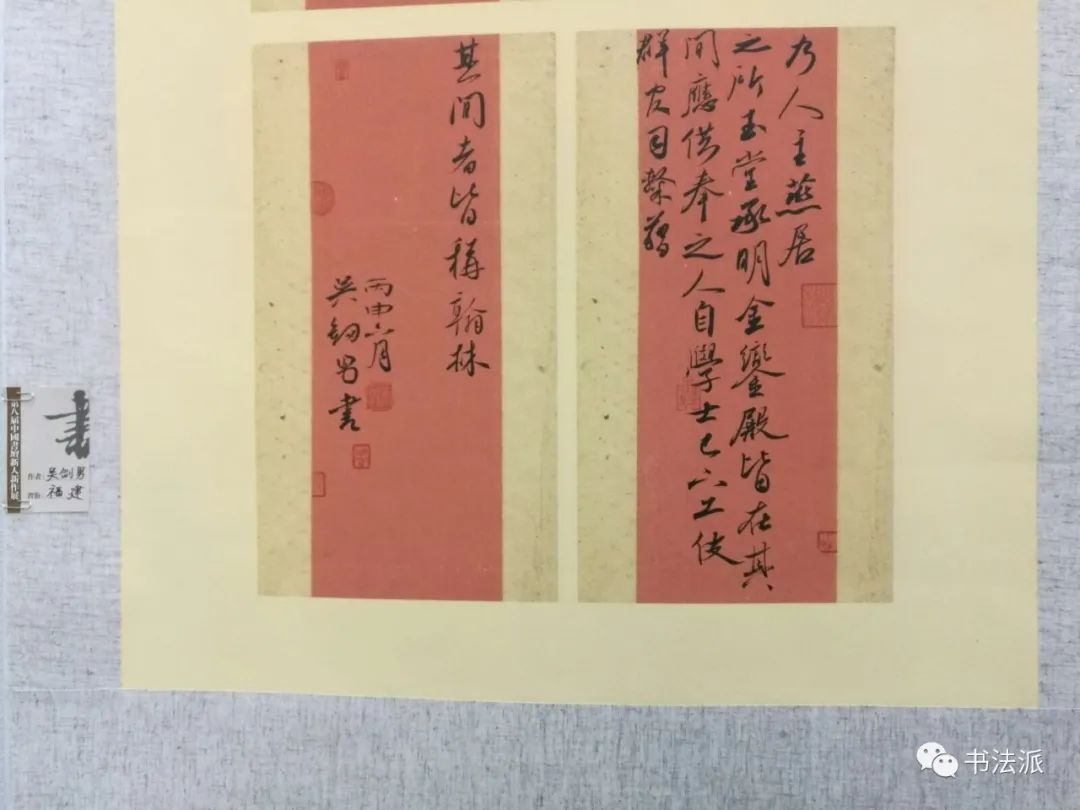 乃人主燕居
之所玉堂承明金鑾殿皆在其
間應供奉之人自學士已下工伎
群官司隸籍
其間者皆稱翰林
丙申六月
吴劒男書
書
第八届中國書壇新人新作展
作者:吴剑男
省份:福建
书法派